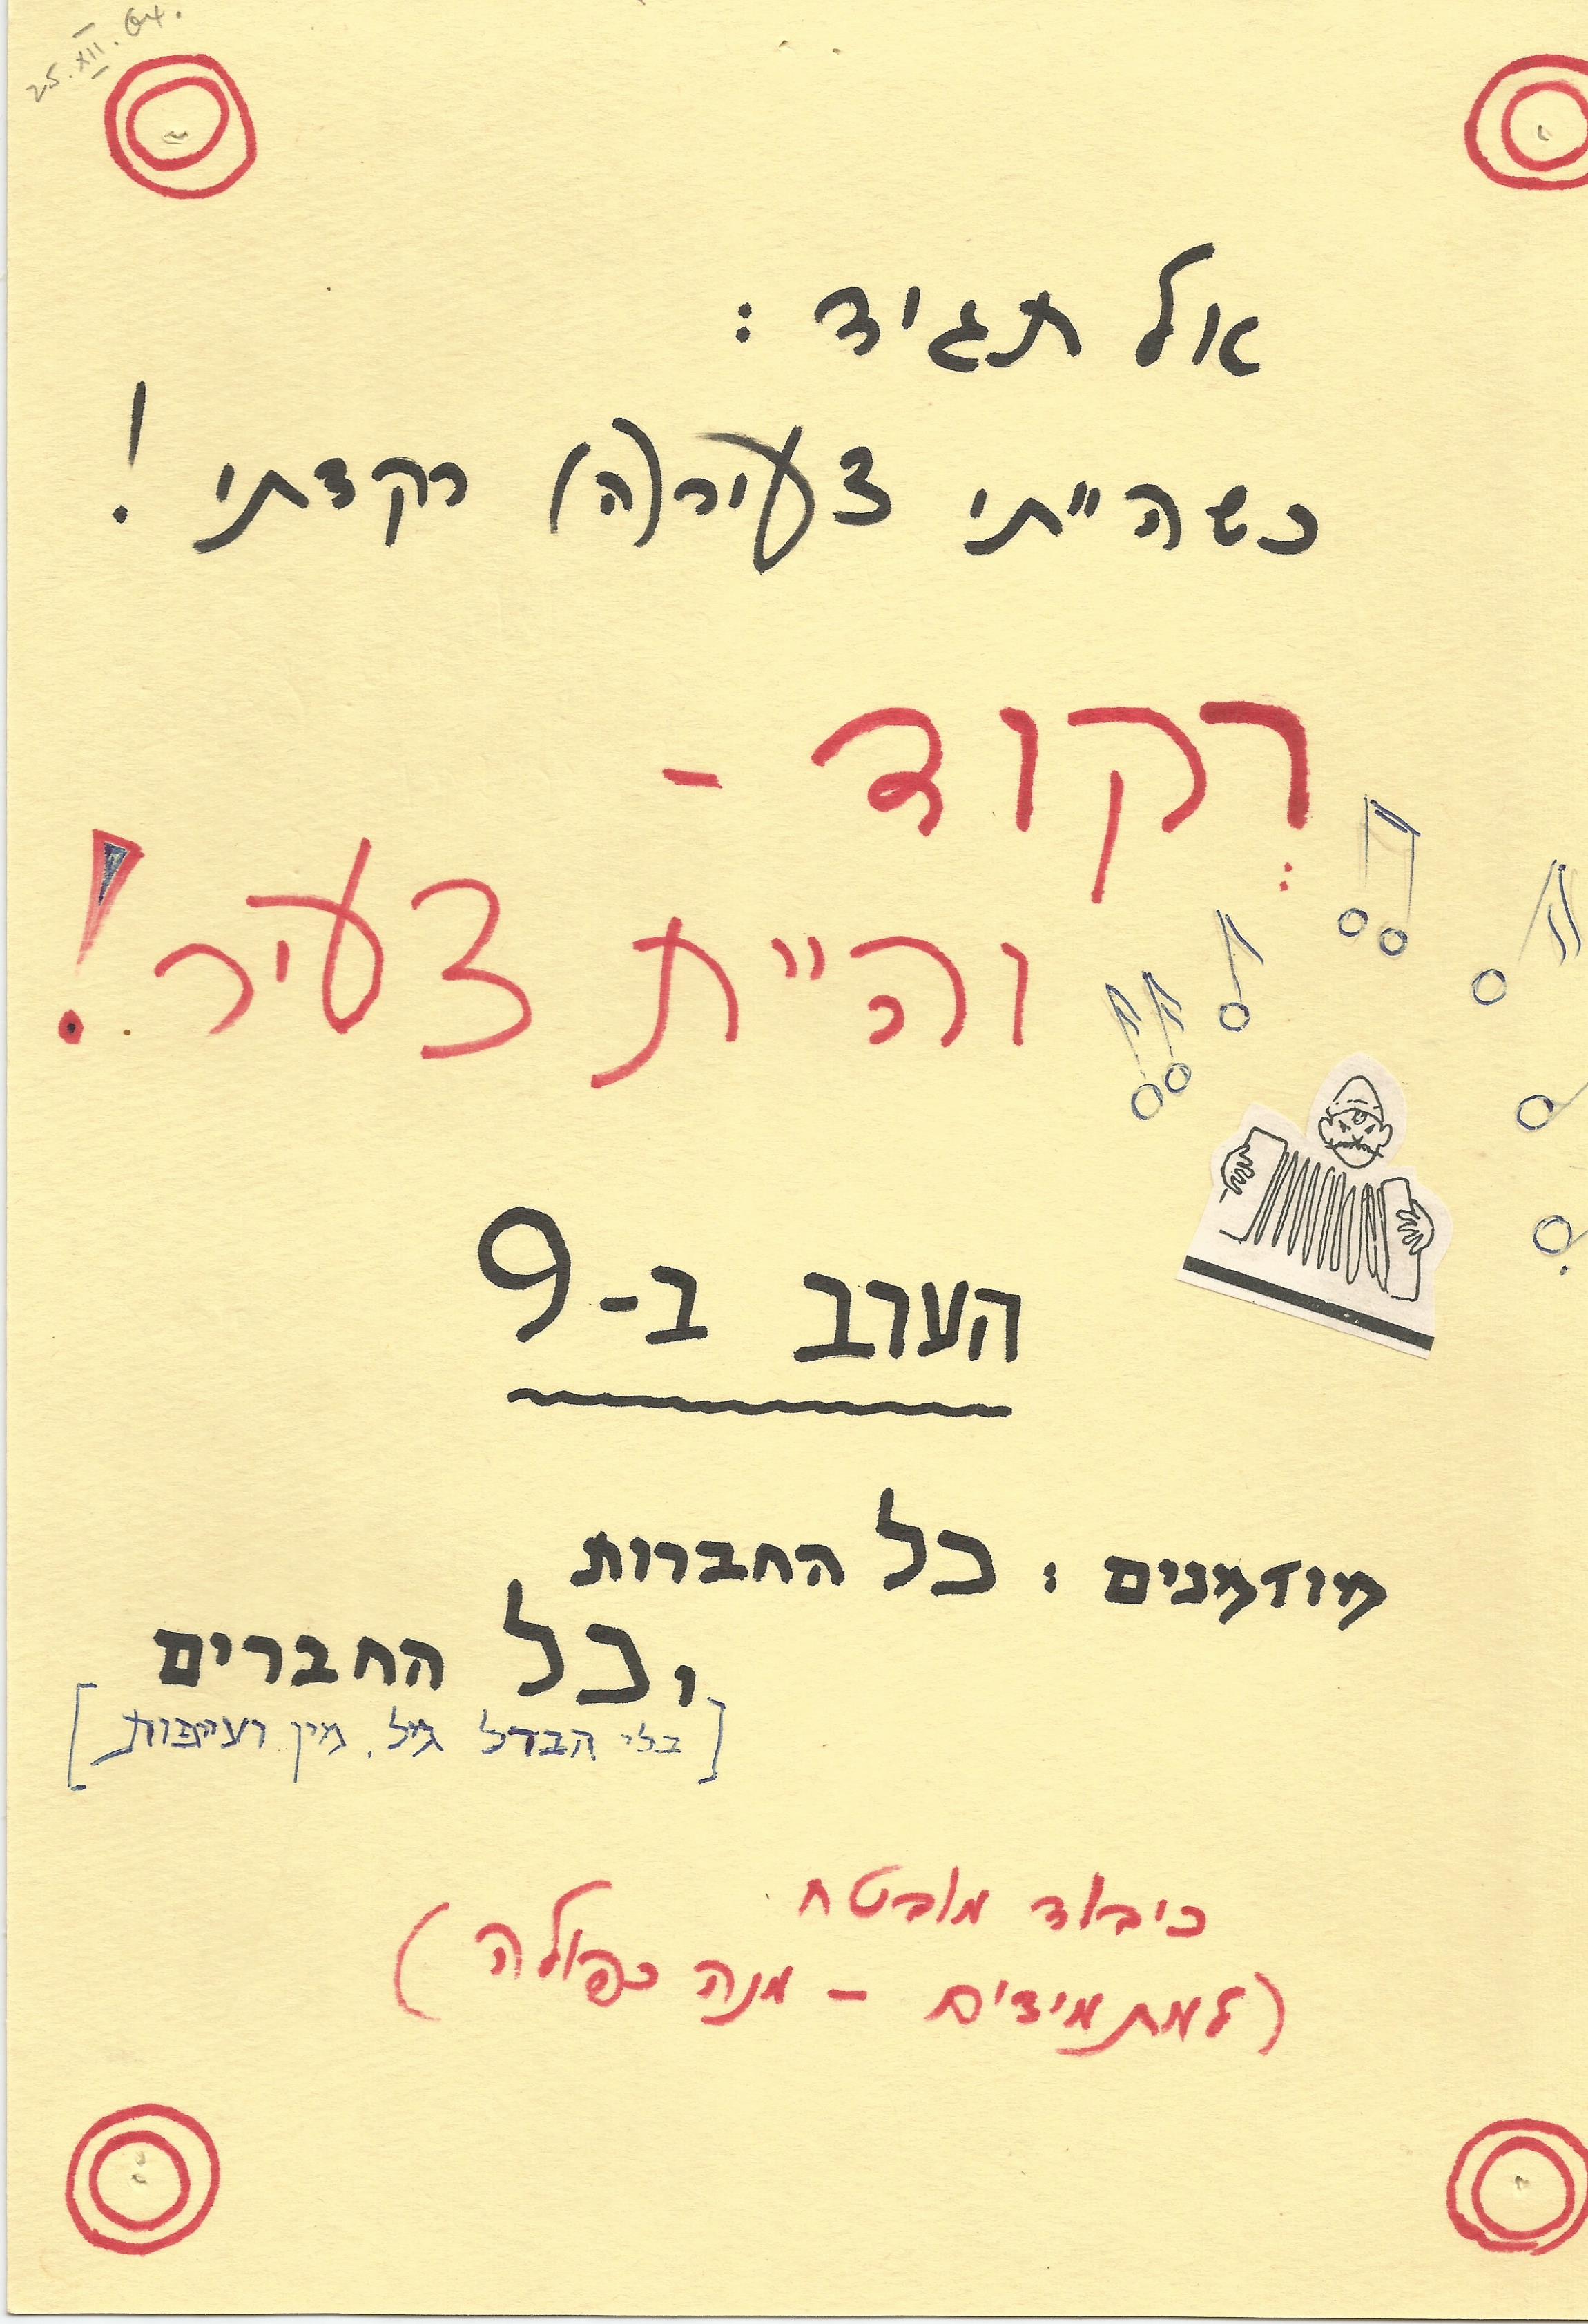 25.XII.04.
אל תגיד :
כשהייתי צעיר(ה) רקדתי !
רקוד -
והיית צעיר !
הערב ב-9
מוזמנים : כל החברות
וכל החברים
[בלי הבדל גיל, מין ועייפות]
כיבוד מובטח
(למתמידים - מנה כפולה)